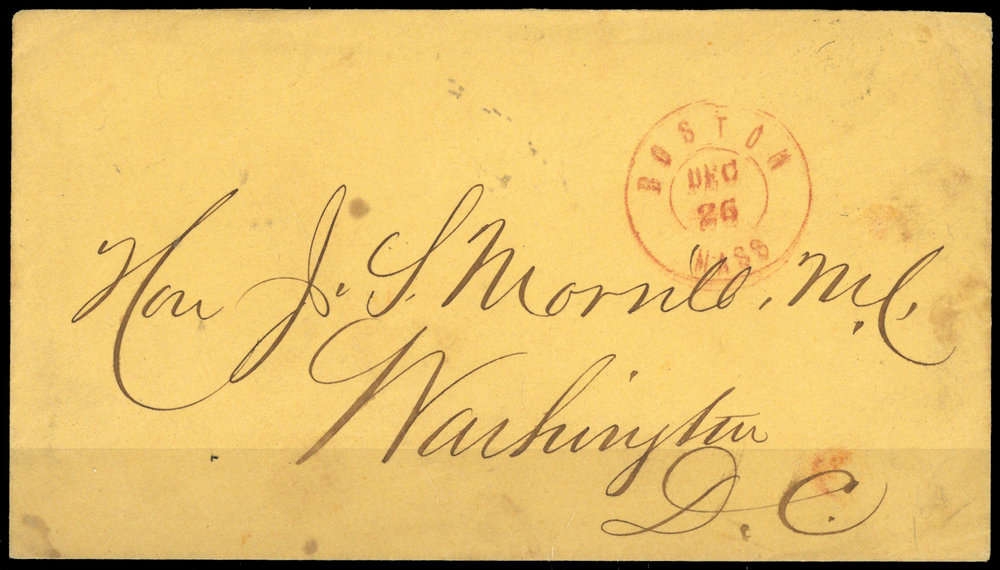 BOSTON
DEC
26
MASS
Hon J. S. Morrill, M.C.
Washington
D.C.